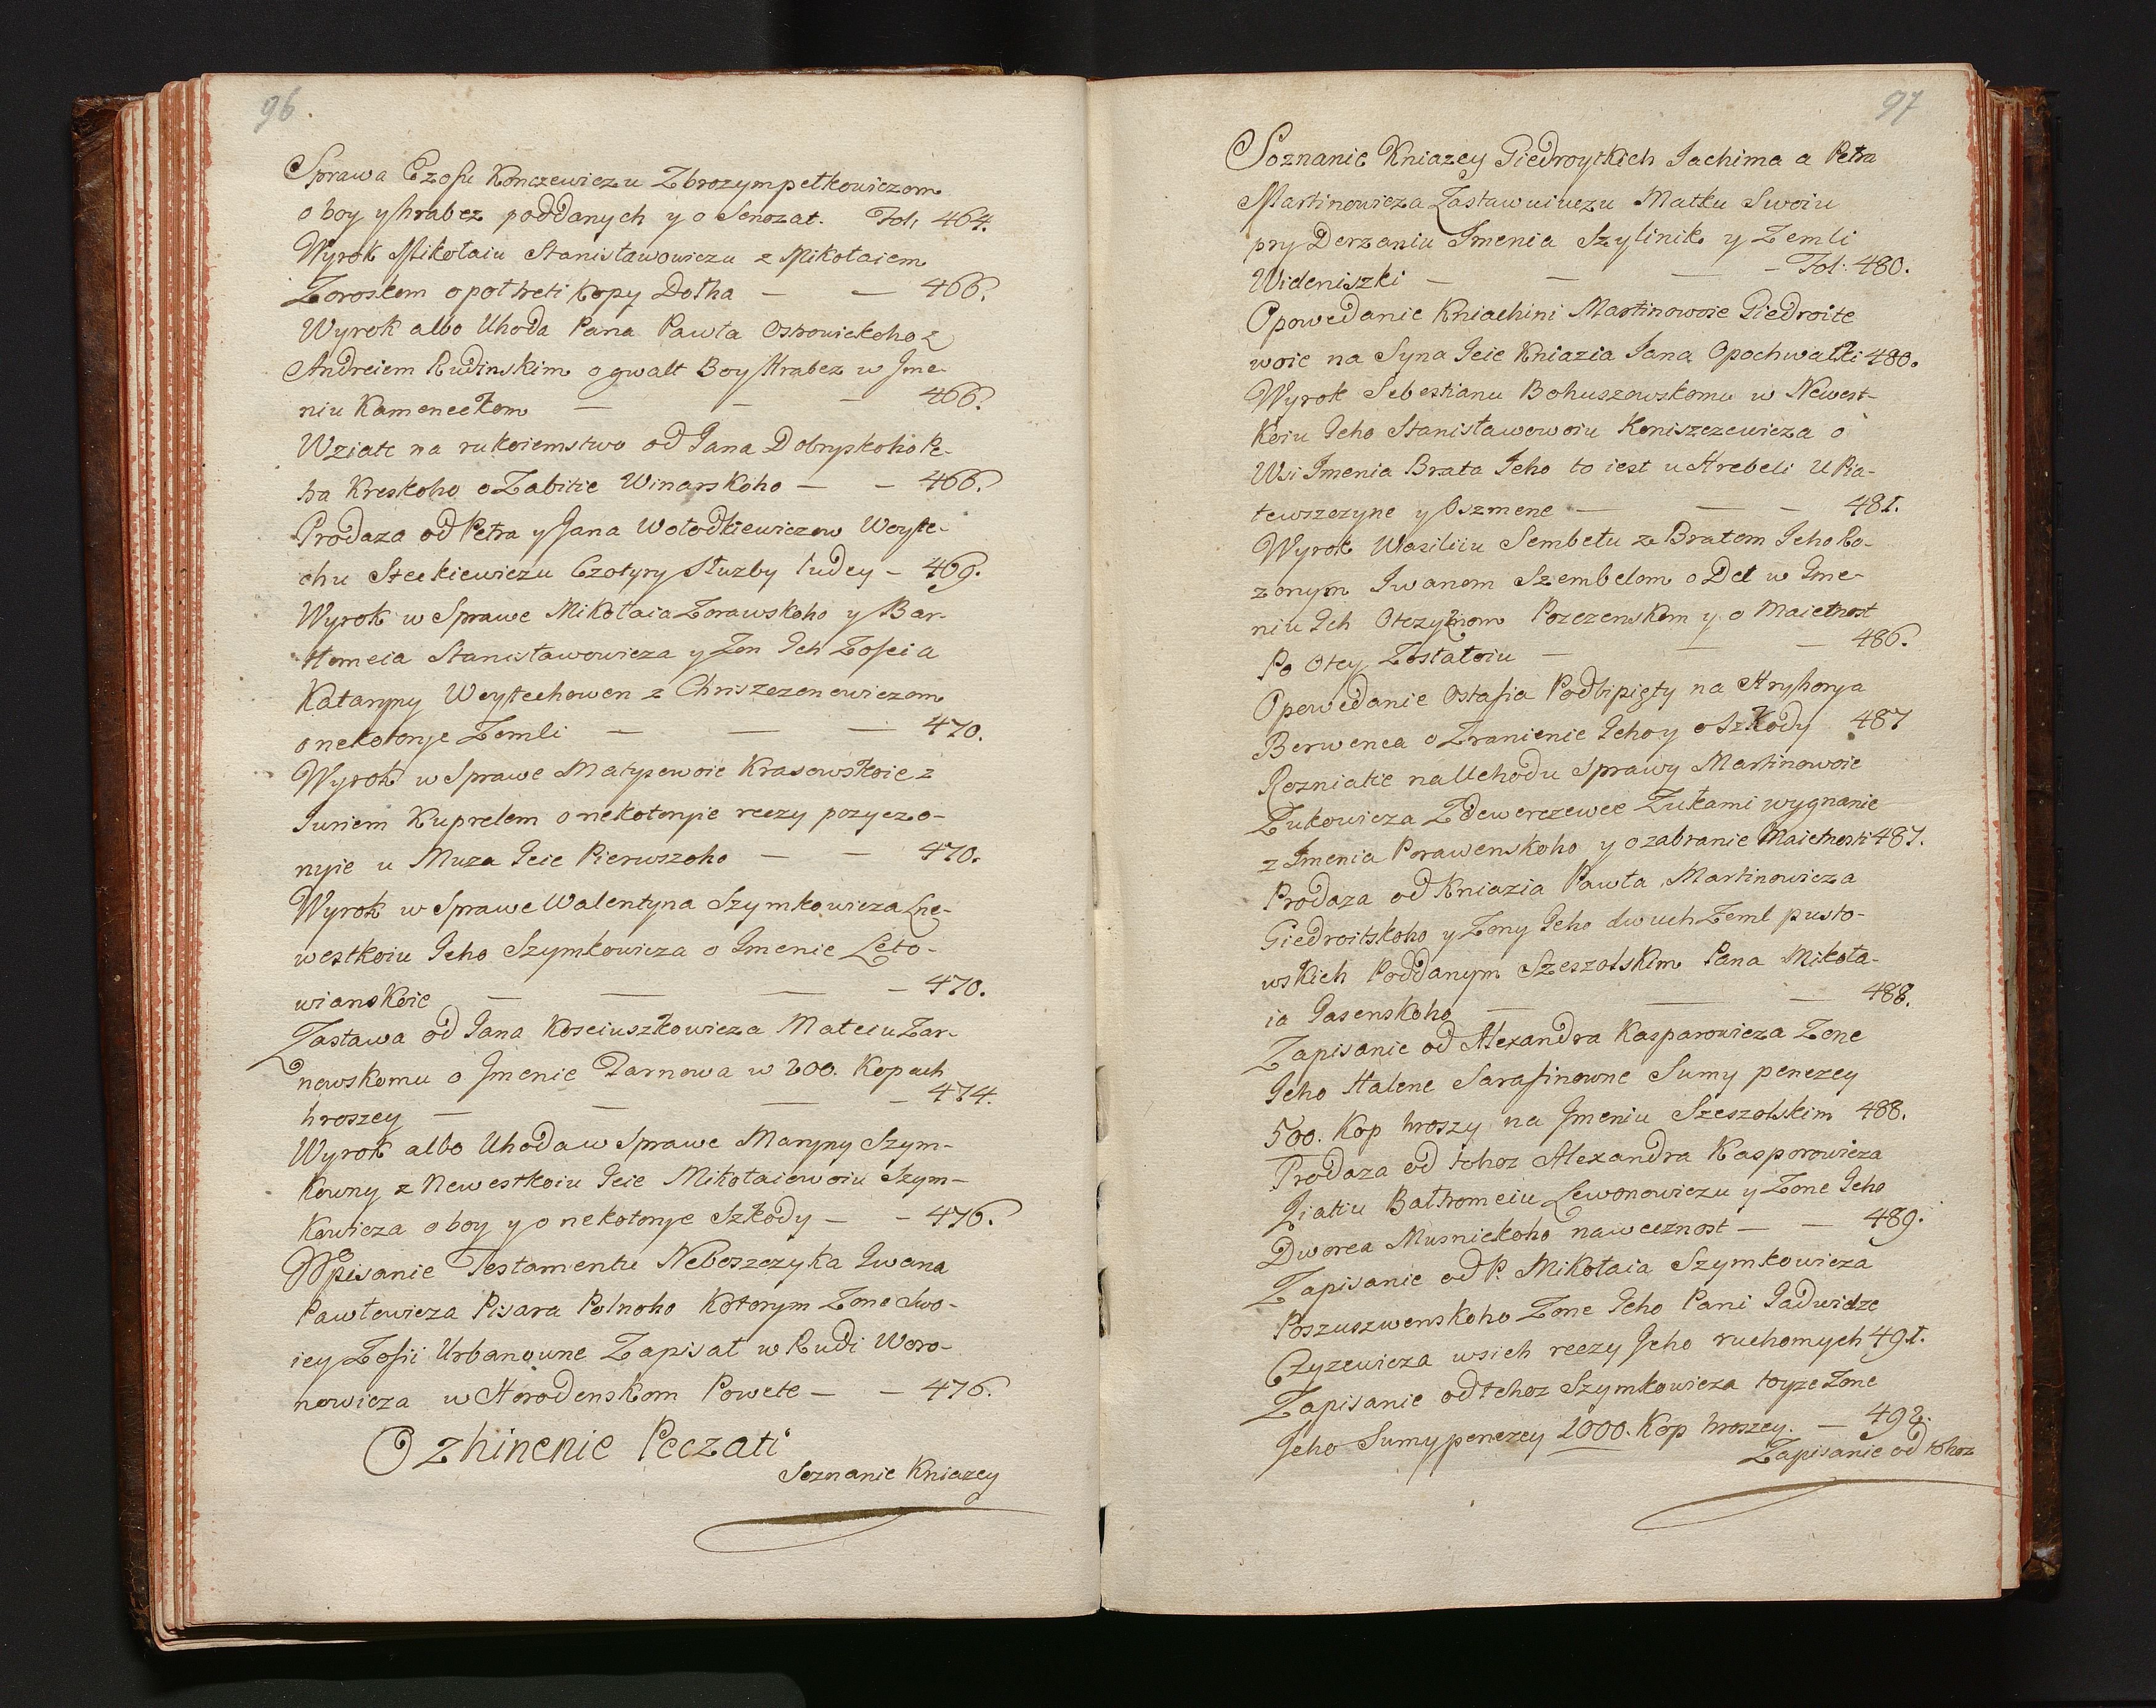 96.
Sprawa Czosu Konczewiczu Zbrozympetkowiczom
o boy y hrabez poddanych y o Senozat. Fol, 464.
Wyrok Mikołaiu Stanisławowiczu z Mikołaiem
Zoroskom o poł treti kopy Dołha — — 466.
Wyrok albo Uhoda Pana Pawła Ostrowickoho z
Andreiem Rudinskim o gwalt Boy Hrabez w Jme-
niu Kameneckom — — — 466.
Wziate na rukoiemstwo od Jana Dobryskoho Pe-
tra Kreskoho o Zabitie Winarskoho — — 466.
Prodaza od Petra y Jana Wołodkiewiczow Woyte-
chu Steckiewiczu Czotyry Słuzby ludey — 469.
Wyrok w Sprawe Mikołaia Zorawskoho y Bar-
tłomeia Stanisławowicza y Zon Ich Zofei a
Kataryny Woytechowen z Chriszczonowiczom
o nekotoryie Zemli — — — 470.
Wyrok w Sprawe Matysewoie Krasowskoie z
Juriem Kuprelem o nekotoryie reczy pozyczo-
nyie u Muza Jeie Pierwszoho — — 470.
Wyrok w Sprawe Walentyna Szymkowicza z ne-
westkoiu Jeho Szymkowicza o Jmenie Leto-
wianskoie — — — — 470.
Zastawa od Jana Kosciuszkowicza Mateiu Zar-
nowskomu o Jmenie Tarnowa w 200. Kopach
hroszey — — — — 474.
Wyrok albo Uhoda w Sprawe Maryny Szym-
kowny z Newestkoiu Jeie Mikołaiowoiu Szym-
kowicza o boy y o nekotoryie Szkody — — 476.
Wpisanie Testamentu Neboszczyka Iwana
Pawłowicza Pisara Polnoho Kotorym Zone Swo-
iey Zofii Urbanowne Zapisał w Rudi Woro-
nowicza w Horodenskom Powete — — 476.
O zhinenie Peczati
Soznanie Kniazey
97
Soznanie Kniazey Giedroytkich Jachima a Petra
Martinowicza Zastawuiuczu Matku Swoiu
pry Derzaniu Jmenia Szylinik y Zemli
Wideniszki — — — Fol: 480.
Opowedanie Kniachini Martinowoie Giedroite
woie na Syna Jeie Kniazia Jana Opochwałki 480.
Wyrok Sebestianu Bohuszowskomu w Newest-
koiu Jeho Stanisławowoiu Koniszczewicza o
Wsi Jmenia Brata Jeho to iest u Hrebeli U Pia-
tewszczyne y Oszmene — — — 481.
Wyrok Wasiliiu Sembelu z Bratom Jeho Ro-
zonym Iwanom Szembelom o Del w Jme-
niu Ich Otczyznom Pozezenskom y o Maietnost
Po Otcy Zostałoiu — — — 486.
Opowedanie Ostafia Podbipięty na Hryhorya
Berwenca o Zranienie Jeho y o Szkody 487
Rozniatie na Uchodu Sprawy Martinowoie
Zukowicza Zdeworczewce Zukami wygnanie
z Jmenia Porawenskoho y o zabranie Maietnosti 487.
Prodaza od Kniazia Pawła Martinowicza
Giedroitskoho y Zony Jeho dwuch Zeml pusto-
wskich Poddanym Szeszolskim Pana Mikoła-
ia Jasenskoho — — — 488.
Zapisanie od Alexandra Kasparowicza Zone
Jeho Halene Sarafinowne Sumy penezey
500. Kop hroszy na Jmeniu Szeszolskim 488.
Prodaza od tohoz Alexandra Kasporowicza
Ziatiu Bałtromeiu Lewonowiczu y Zone Jeho
Dworca Musnickoho na wecznost — — 489.
Zapisanie od P. Mikołaia Szymkowicza
Poszuszwenskoho Zone Jeho Pani Jadwidze
Czyzewicza wsich reczy Jeho ruchomych 491.
Zapisanie od tohoz Szymkowicza toyze Zone
Jeho Sumy penezey 1000. Kop hroszey. — 492.
Zapisanie od tohoz